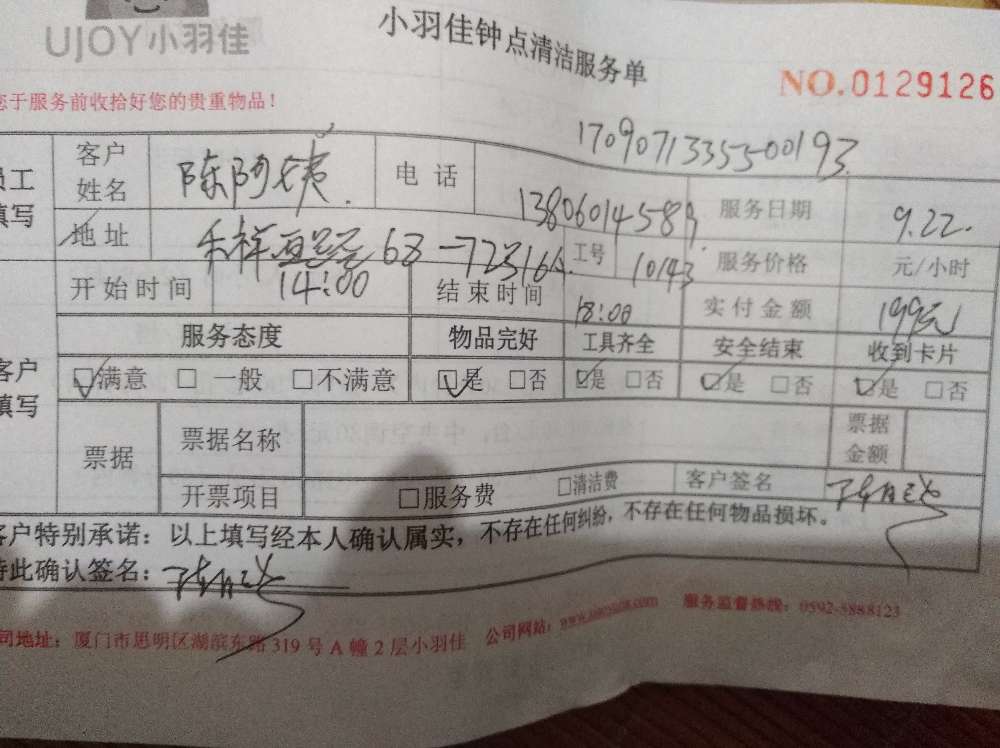 UJOY小羽佳
小羽佳钟点清洁服务单
NO.0129126
您于服务前收拾好您的贵重物品！
1709071335500193
员工填写
客户姓名 陈阿姨 电话 13806014589 服务日期 9.22.
地址 禾祥西路 68 工号 10143 服务价格 元/小时
开始时间 14:00 结束时间 18:00 实付金额 199元
客户填写
服务态度 物品完好 工具齐全 安全结束 收到卡片
满意 一般 不满意 是 否 是 否 是 否 是 否
票据 票据名称 票据金额
开票项目 服务费 清洁费 客户签名
客户特别承诺：以上填写经本人确认属实，不存在任何纠纷，不存在任何物品损坏。
特此确认签名：
司地址：厦门市思明区湖滨东路319号A幢2层小羽佳 公司网站： 服务监督热线：0592-8888123